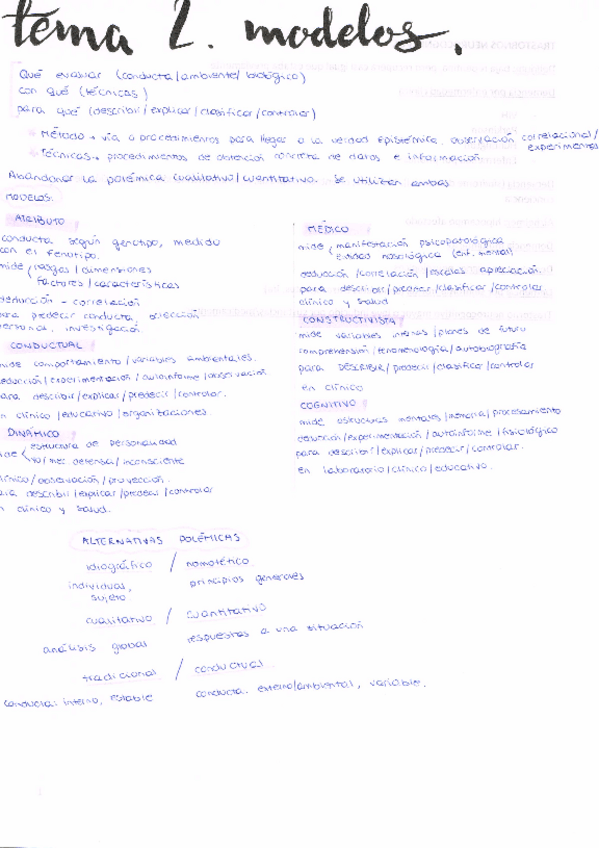 tema 2. modelos.
Qué evaluar (conducta/ambiente/biológico)
con qué (técnicas)
para qué (describir/explicar/clasificar/controlar)
Método → vía o procedimientos para llegar a la verdad epistémica, observación correlacional/
experimentos
Técnicas → procedimientos de obtención concreta de datos e información
Abandonar la polémica cualitativo/cuantitativo. Se utilizan ambas
MODELOS:
ATRIBUTO
conducta según genotipo, medido
con el fenotipo.
mide rasgos/dimensiones
factores/características
deducción - correlación
para predecir conducta, selección
personal, investigación.
CONDUCTUAL
mide comportamiento/variables ambientales.
deducción/experimentación/autoinforme/observación
para describir/explicar/predecir/controlar.
en clínico/educativo/organizaciones.
DINÁMICO
mide estructura de personalidad
yo/mec defensa/inconsciente
clínico/observación/proyección.
para describir/explicar/predecir/controlar
en clínico y salud.
MÉDICO
mide manifestación psicopatológica
entidad nosológica (enf. mental)
deducción/correlación/escalas apreciación.
para describir/predecir/clasificar/controlar
clínico y salud
CONSTRUCTIVISTA
mide variables internas/planes de futuro
comprensión/fenomenología/autobiografía
para DESCRIBIR/predecir/clasificar/controlar
en clínico
COGNITIVO
mide estructuras mentales/memoria/procesamiento
deducción/experimentación/autoinforme/fisiológico
para describir/explicar/predecir/controlar.
en laboratorio/clínico/educativo.
ALTERNATIVAS POLÉMICAS
idiográfico / nomotético
individuos, principios generales
sujeto
cualitativo / cuantitativo
análisis global respuestas a una situación
tradicional / conductual
conducta: interno, estable conducta: externo/ambiental, variable.